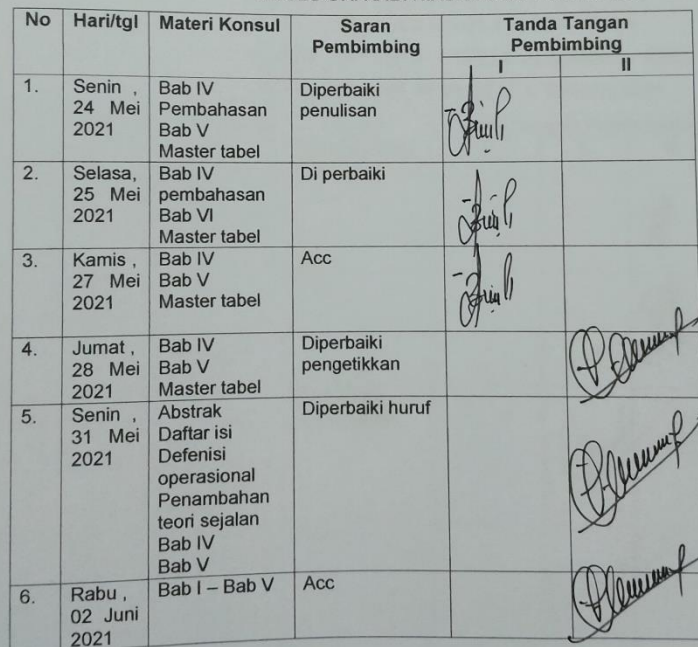 No Hari/tgl Materi Konsul Saran Pembimbing Tanda Tangan Pembimbing
I II
1. Senin , 24 Mei 2021
Bab IV
Pembahasan
Bab V
Master tabel
Diperbaiki
penulisan
2. Selasa, 25 Mei 2021
Bab IV
pembahasan
Bab VI
Master tabel
Di perbaiki
3. Kamis , 27 Mei 2021
Bab IV
Bab V
Master tabel
Acc
4. Jumat , 28 Mei 2021
Bab IV
Bab V
Master tabel
Diperbaiki
pengetikkan
5. Senin , 31 Mei 2021
Abstrak
Daftar isi
Defenisi
operasional
Penambahan
teori sejalan
Bab IV
Bab V
Diperbaiki huruf
6. Rabu , 02 Juni 2021
Bab I – Bab V
Acc